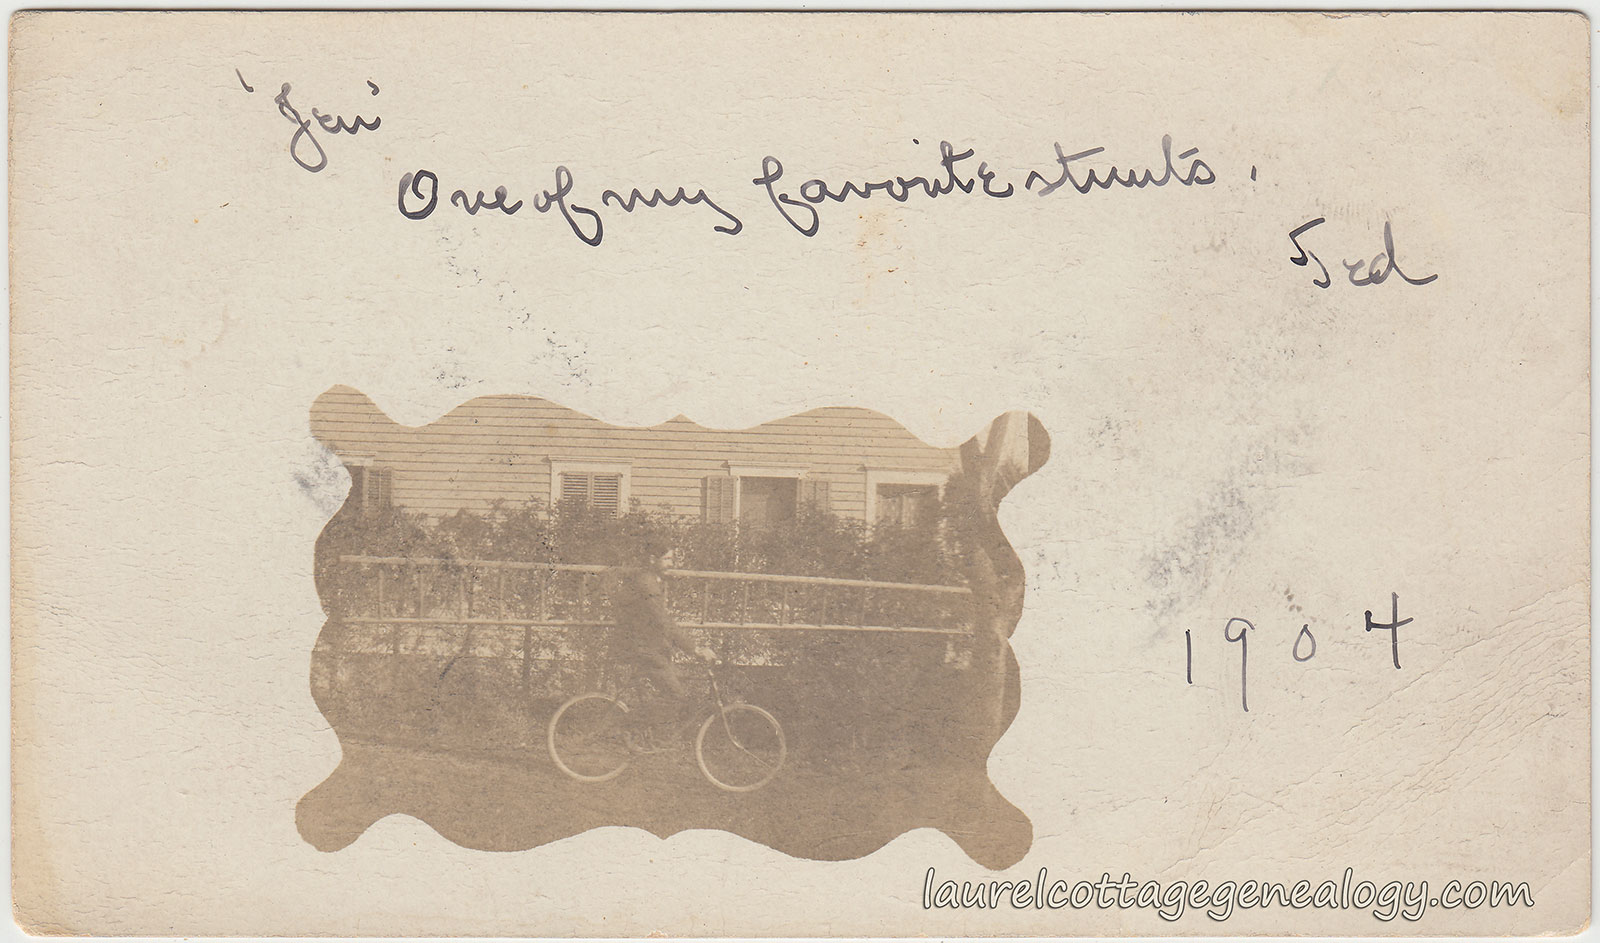 'Jen'
One of my favorite stunts.
Ted
1904
laurelcottagegenealogy.com